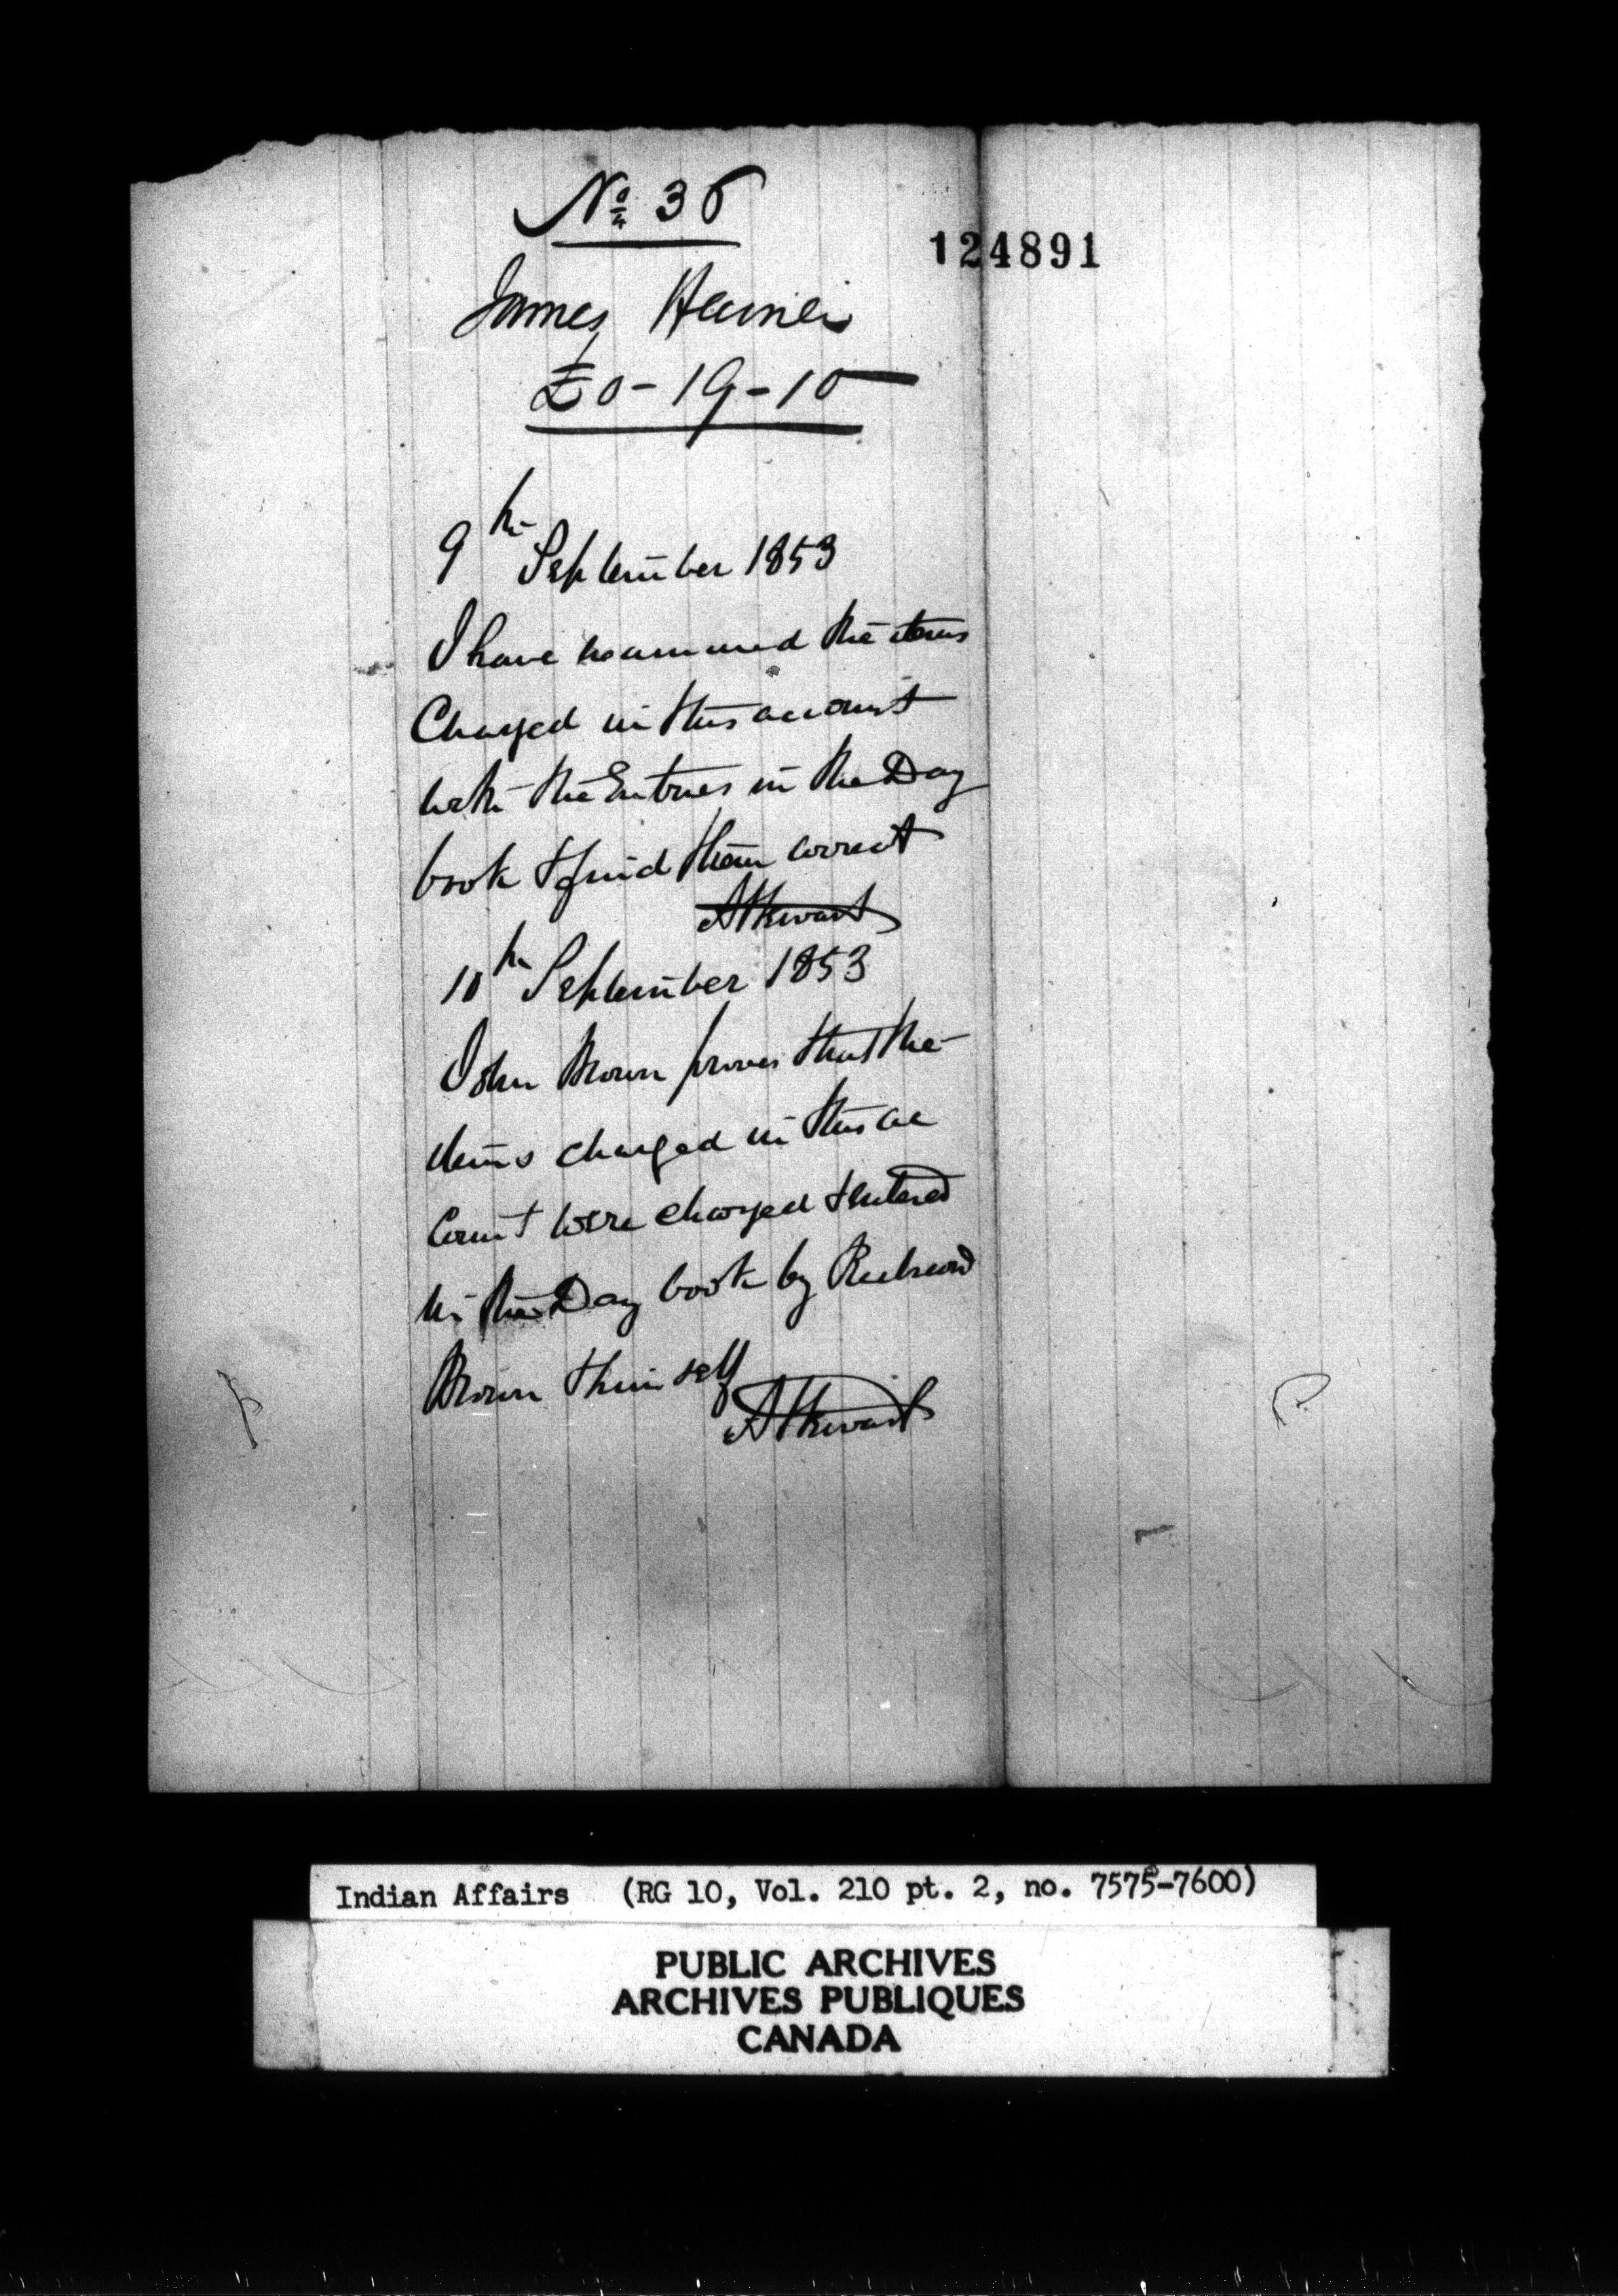 No 36
124891
James
£0-19-10
9th September 1853
I have examined the items
Charged in this account
with the Entries in the Day
book & find them correct
10th September 1853
John Brown proves that the
items charged in this ac
count were charged & Entered
in the Day book by
Brown himself
Indian Affairs (RG 10, Vol. 210 pt. 2, no. 7575-7600)
PUBLIC ARCHIVES
ARCHIVES PUBLIQUES
CANADA